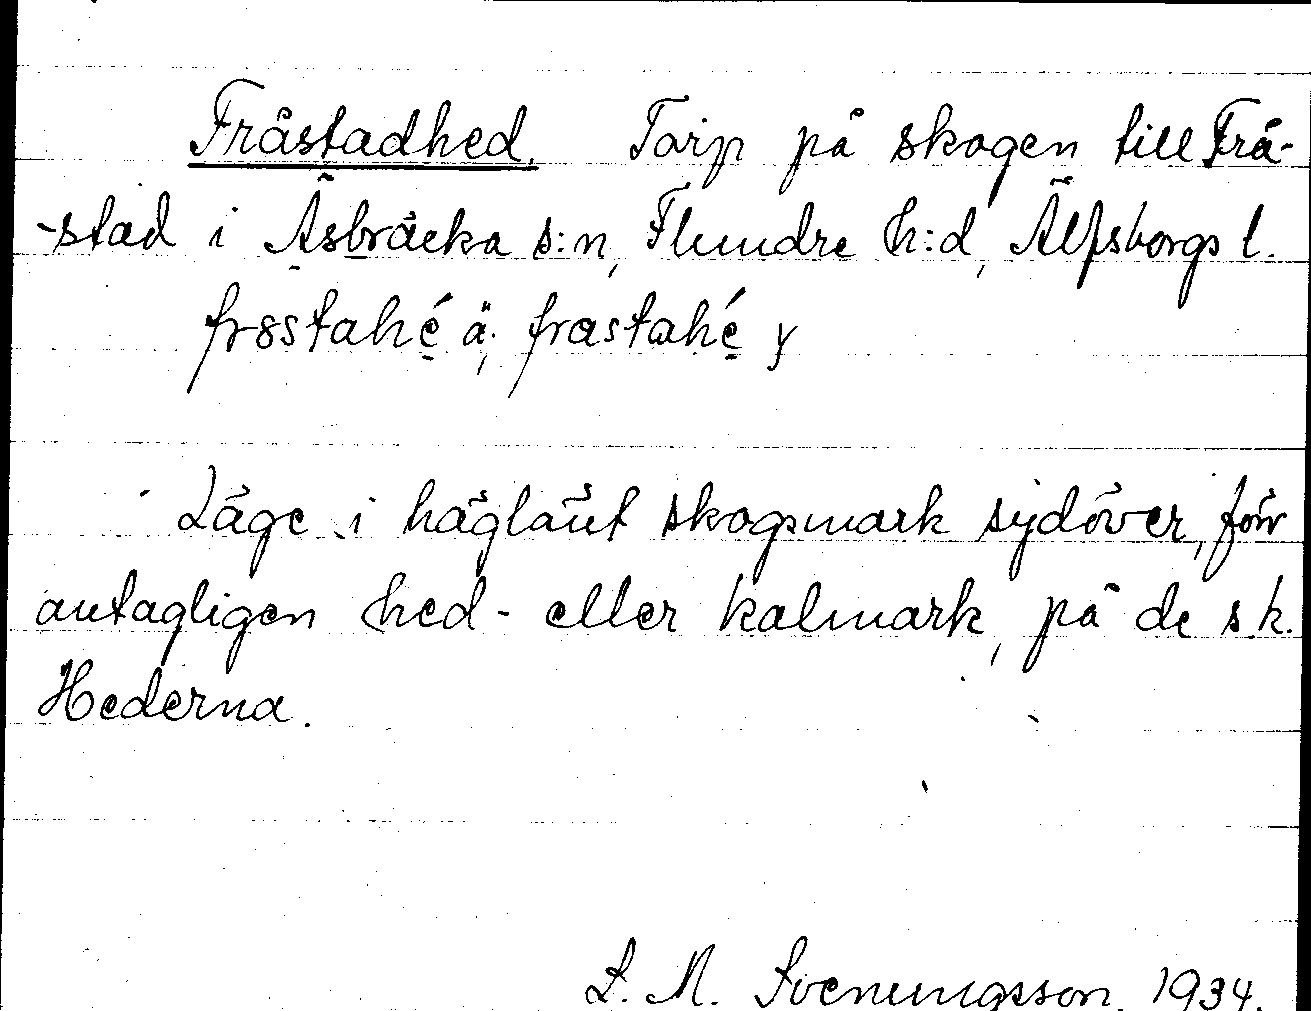 Fråstadhed. Torp på skogen till Frå-
-stad i Åsbräcka s:n, Flundre h:d, Älfsborgs l.
frɜstahé ä; frastahé y
Läge i höglänt skogsmark sydöver, förr
antagligen hed- eller kalmark, på de s.k.
Hederna.
L. M. Svenungsson. 1934.